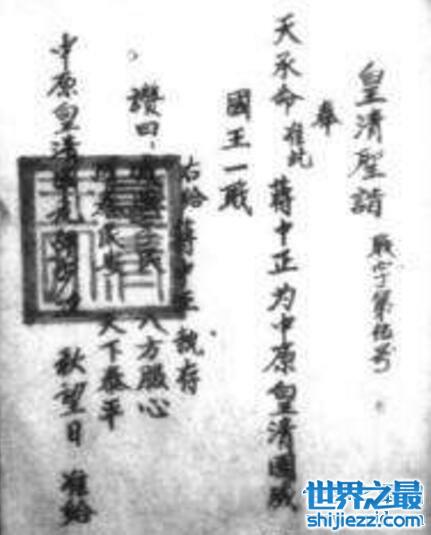 皇清聖誥 字第号
奉
天承命 准此 蔣中正为中原皇清國威
國王一
右给蔣中正執存
讚曰 民 八方服心
泰民安 天下泰平
中原皇清國元 秋望日 准給
世界之最
shijiezz.com